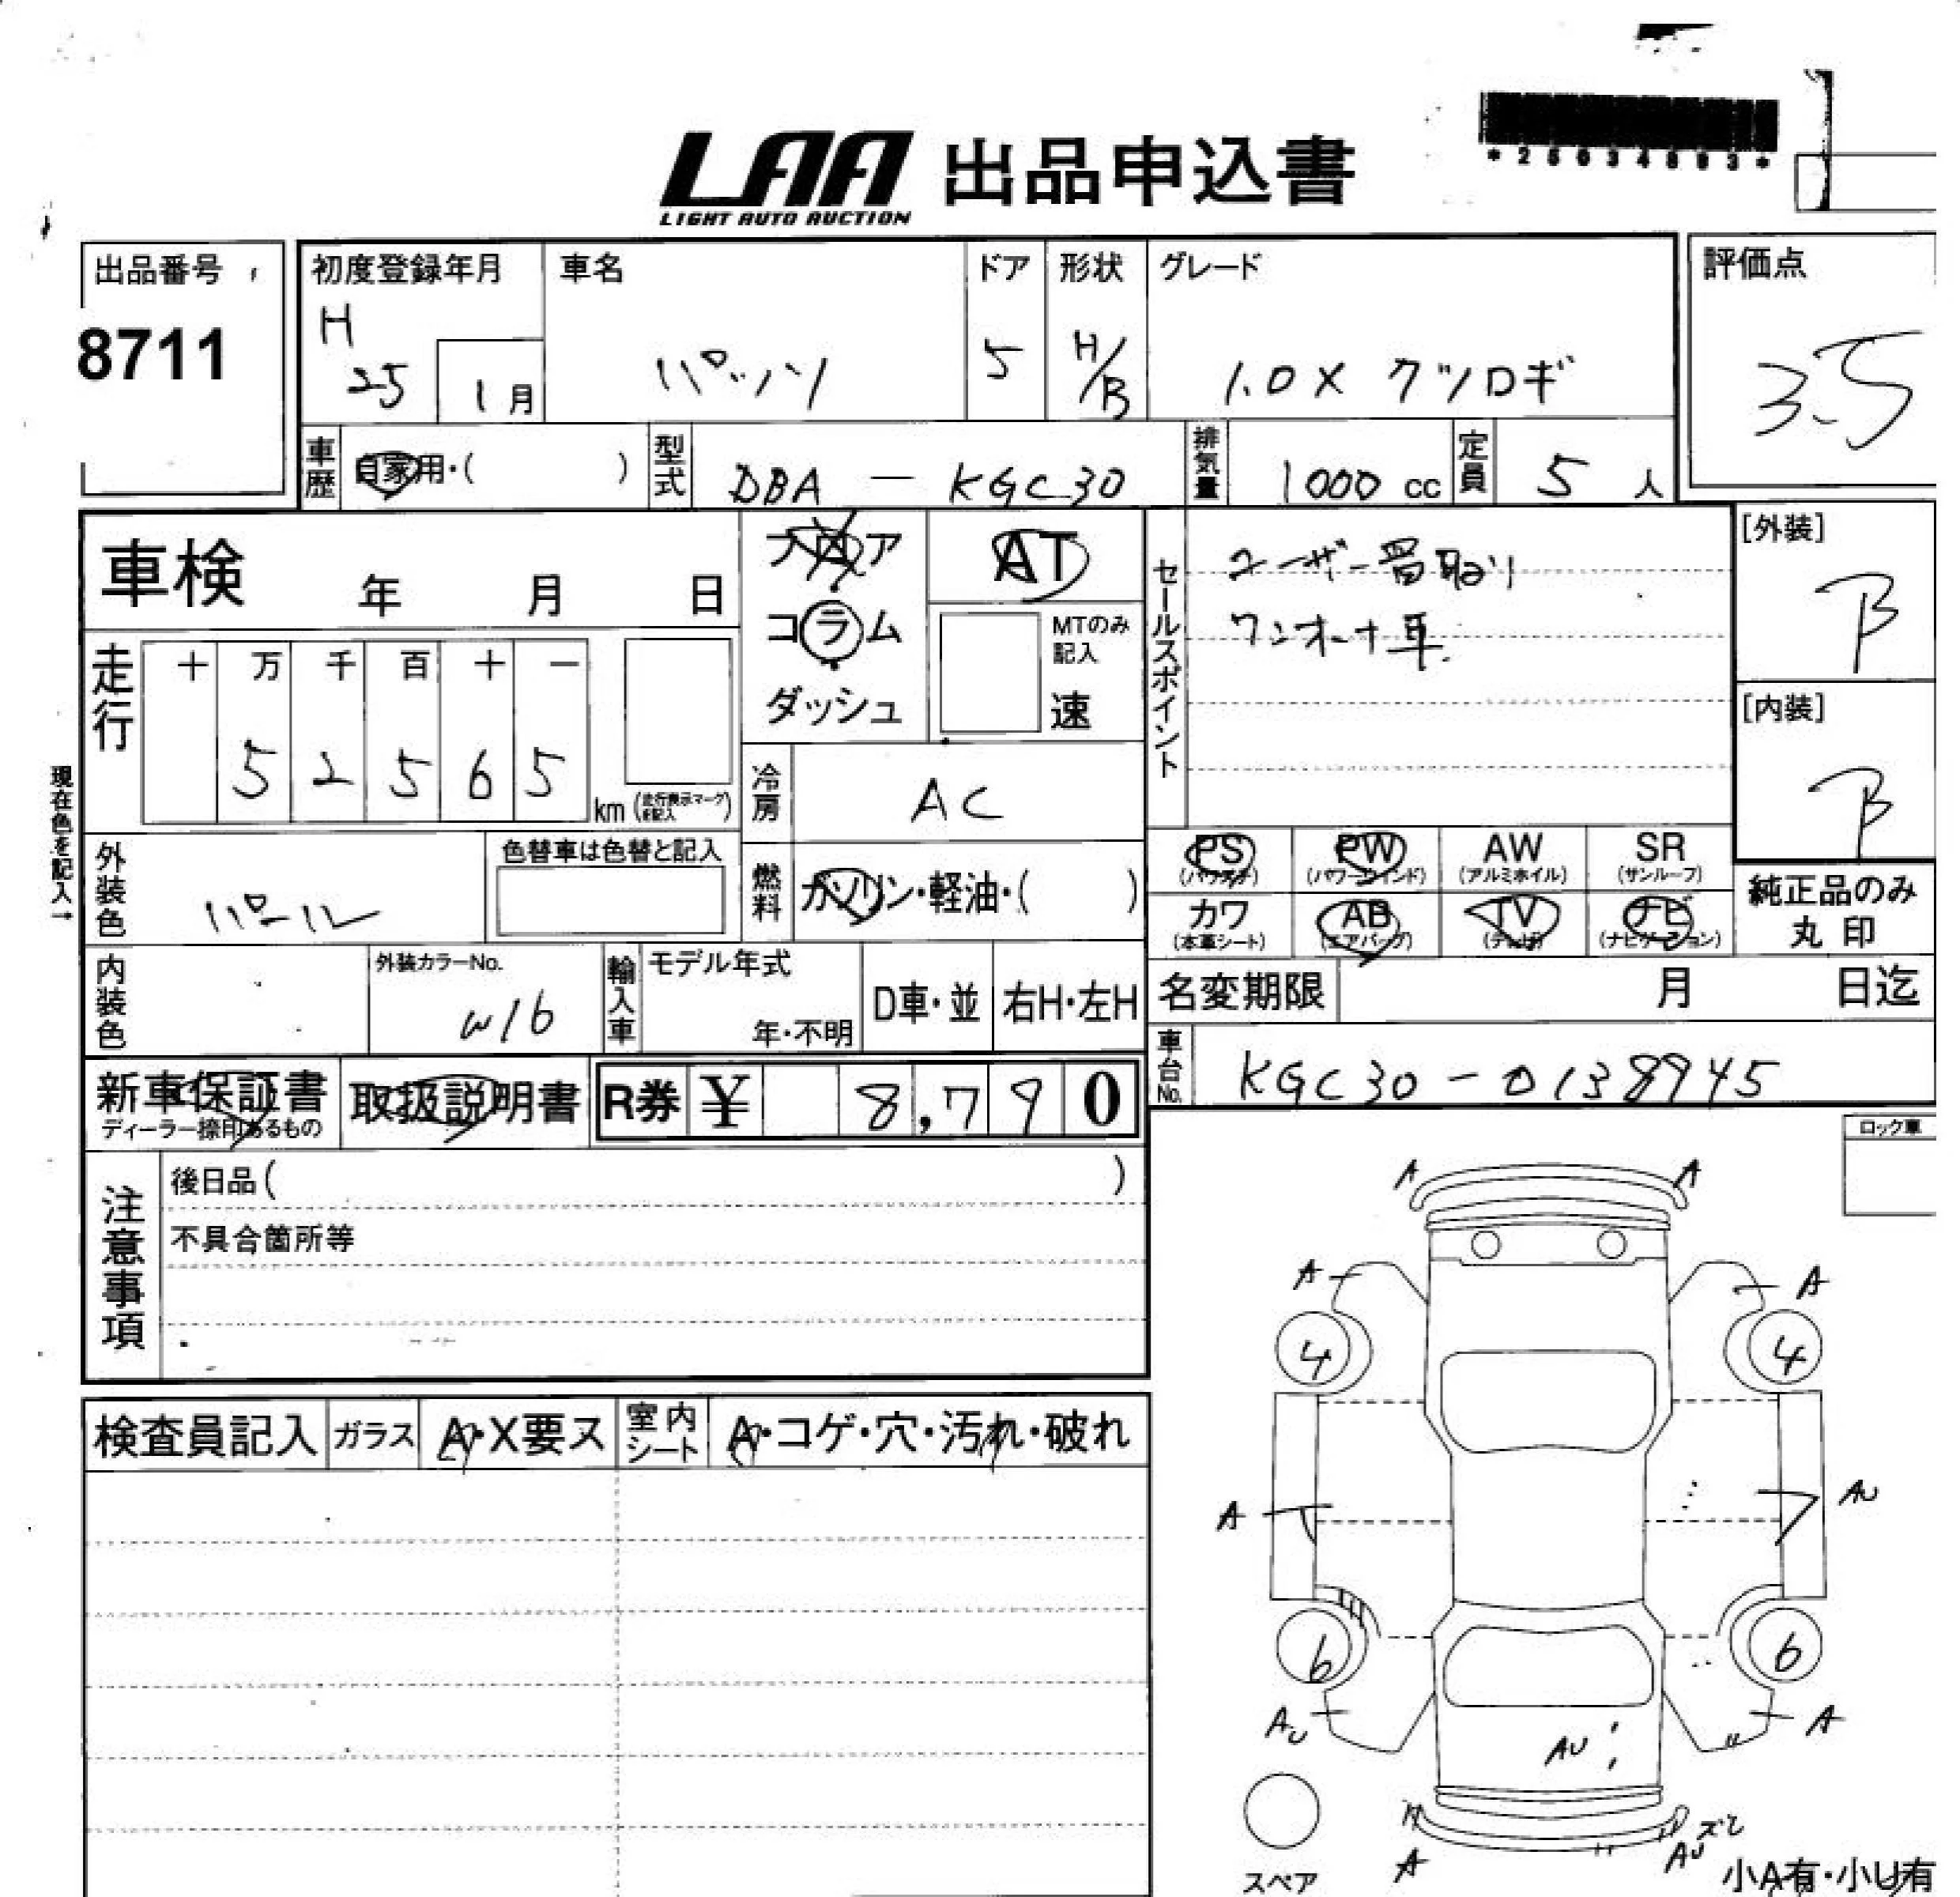 *25034893*
LAA 出品申込書
LIGHT AUTO AUCTION
出品番号
8711
初度登録年月
H
25 1月
車名
パッソ
ドア
5
形状
H/B
グレード
1.0X クツロギ
評価点
3.5
車歴 自家用・( )
型式 DBA - KGC30
排気量 1000 cc
定員 5 人
車検 年 月 日
フロア
コラム
ダッシュ
AT
MTのみ
記入
速
セールスポイント
ユーザー買取り
ワンオーナ車
[外装]
B
[内装]
B
走行
十 万 千 百 十 一
5 2 5 6 5
km
現在色を記入→
冷房 AC
外装色 パール
色替車は色替と記入
燃料 ガソリン・軽油・( )
PS PW AW SR
(パワステ) (パワーウインド) (アルミホイル) (サンルーフ)
カワ AB TV ナビ
(本革シート) (エアバッグ) (テレビ) (ナビゲーション)
純正品のみ
丸印
内装色
外装カラーNo.
W16
輸入車
モデル年式
年・不明
D車・並
右H・左H
名変期限 月 日迄
車台No. KGC30-0138945
新車保証書
ディーラー捺印あるもの
取扱説明書
R券 ¥ 8,790
注意事項
後日品( )
不具合箇所等
ロック車
A A
A A
4 4
検査員記入 ガラス A・X要ス 室内シート A・コゲ・穴・汚れ・破れ
A AU
6 6
AU A
AU
スペア
A
AU
小A有・小U有